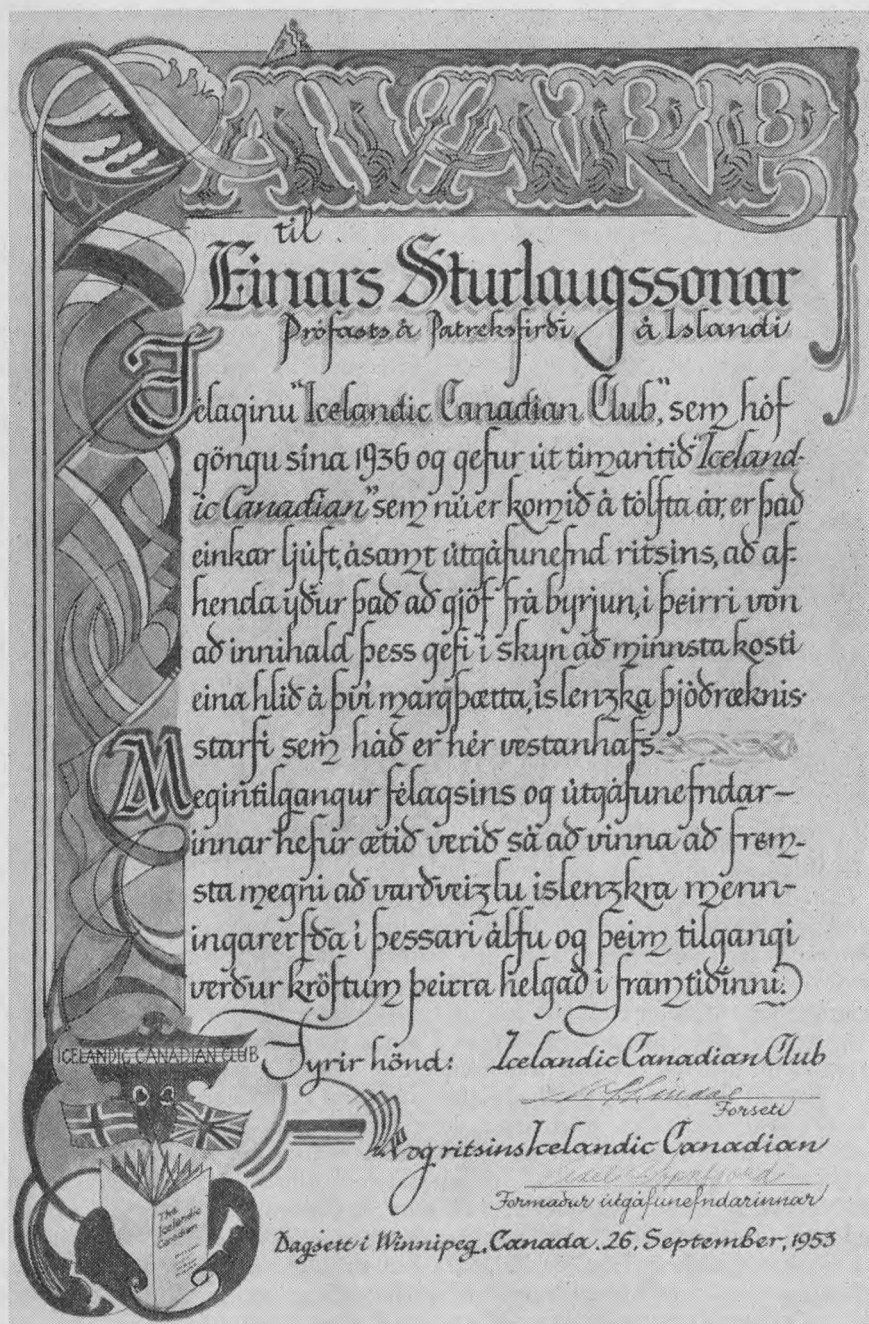 ÁVARP
til
Einars Sturlaugssonar
Prófasts á Patreksfirði á Íslandi
Félaginu "Icelandic Canadian Club", sem hóf
göngu sína 1936 og gefur út tímaritið "Iceland-
ic Canadian" sem nú er komið á tólfta ár, er það
einkar ljúft, ásamt útgáfunefnd ritsins, að af-
henda yður það að gjöf frá byrjun, í þeirri von
að innihald þess gefi í skyn að minnsta kosti
eina hlið á því margþætta, íslenzka þjóðræknis-
starfi sem háð er hér vestanhafs.
Megintilgangur félagsins og útgáfunefndar-
innar hefur ætíð verið sá að vinna að frem-
sta megni að varðveizlu íslenzkra menn-
ingarerfða í þessari álfu og þeim tilgangi
verður kröftum þeirra helgað í framtíðinni.
ICELANDIC CANADIAN CLUB
Fyrir hönd: Icelandic Canadian Club
Forseti
og ritsins Icelandic Canadian
Formaður útgáfunefndarinnar
The
Icelandic
Canadian
Dagsett í Winnipeg, Canada. 26. September, 1953